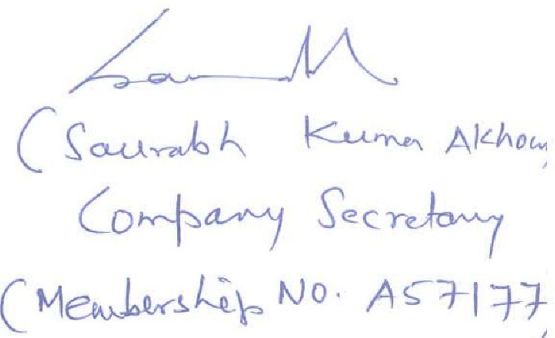 (Saurabh Kumar
Company Secretary
(Membership No. A57177